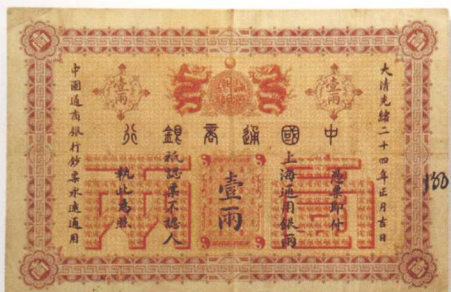 大清光緒二十四年正月吉日
壹兩
壹兩
中國通商銀行
憑票即付
上海通用銀兩
壹兩
祇認票不認人
執此為照
中國通商銀行鈔票永遠通用